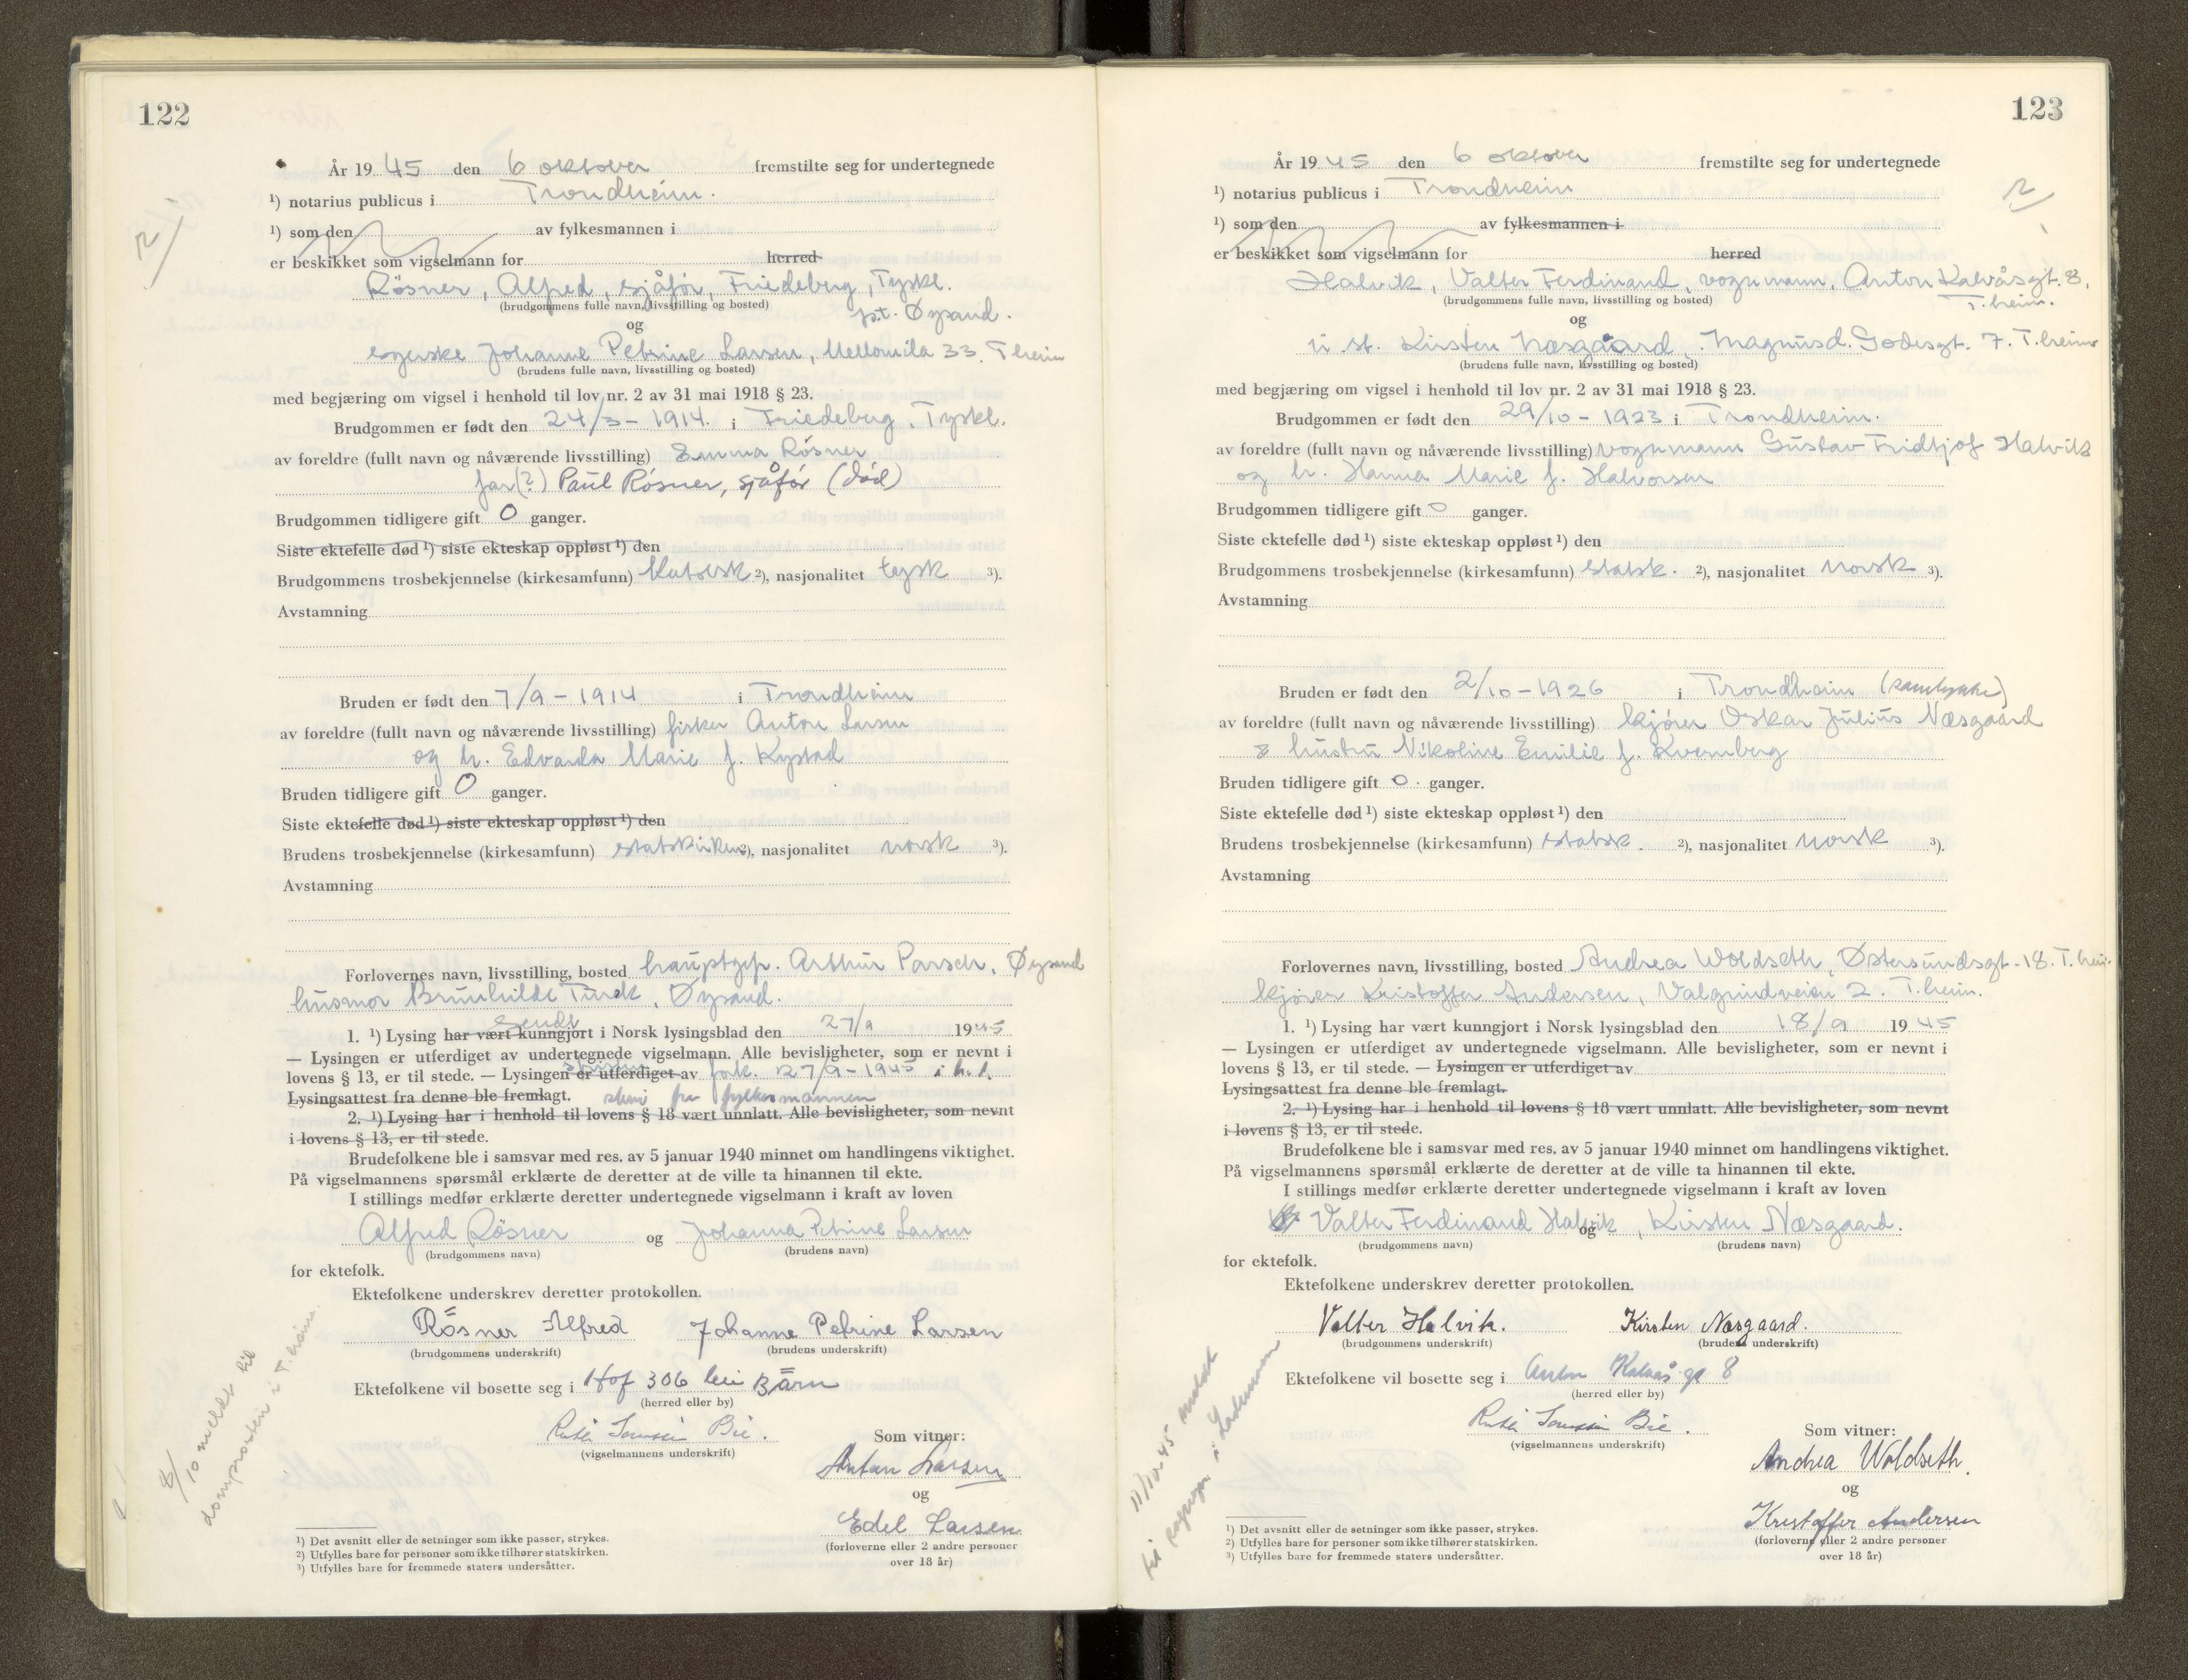 122
År 1945 den 6 oktober fremstilte seg for undertegnede
¹) notarius publicus i Trondheim.
¹) som den av fylkesmannen i
er beskikket som vigselmann for herred
Rösner, Alfred, sjåför, Friedeberg, Tyskl.
(brudgommens fulle navn, livsstilling og bosted)
p.t. Øysand.
og
syerske Johanne Petrine Larsen, Mellomila 33. Theim
(brudens fulle navn, livsstilling og bosted)
med begjæring om vigsel i henhold til lov nr. 2 av 31 mai 1918 § 23.
Brudgommen er født den 24/3 - 1914. i Friedeberg, Tyskl.
av foreldre (fullt navn og nåværende livsstilling) Emma Rösner
far(?) Paul Rösner, sjåför (död)
Brudgommen tidligere gift 0 ganger.
Siste ektefelle død ¹) siste ekteskap oppløst ¹) den
Brudgommens trosbekjennelse (kirkesamfunn) Katolsk ²), nasjonalitet tysk ³).
Avstamning
Bruden er født den 7/9 - 1914 i Trondheim
av foreldre (fullt navn og nåværende livsstilling) fisker Anton Larsen
og h. Edvarda Marie f. Kystad
Bruden tidligere gift 0 ganger.
Siste ektefelle død ¹) siste ekteskap oppløst ¹) den
Brudens trosbekjennelse (kirkesamfunn) statskirken ²), nasjonalitet norsk ³).
Avstamning
Forlovernes navn, livsstilling, bosted hauptgfr. Arthur Parsch, Øysand
husmor Brunhilde Turek, Øysand.
sendt
1. ¹) Lysing har vært kunngjort i Norsk lysingsblad den 27/9 1945
— Lysingen er utferdiget av undertegnede vigselmann. Alle bevisligheter, som er nevnt i
lovens § 13, er til stede. — Lysingen er utferdiget av fork. 27/9 - 1945 i h.t.
Lysingsattest fra denne ble fremlagt. skriv fra fylkesmannen
2. ¹) Lysing har i henhold til lovens § 18 vært unnlatt. Alle bevisligheter, som nevnt
i lovens § 13, er til stede.
Brudefolkene ble i samsvar med res. av 5 januar 1940 minnet om handlingens viktighet.
På vigselmannens spørsmål erklærte de deretter at de ville ta hinannen til ekte.
I stillings medfør erklærte deretter undertegnede vigselmann i kraft av loven
Alfred Rösner og Johanna Petrine Larsen
(brudgommens navn) (brudens navn)
for ektefolk.
Ektefolkene underskrev deretter protokollen.
Rösner Alfred Johanne Petrine Larsen
(brudgommens underskrift) (brudens underskrift)
Ektefolkene vil bosette seg i Hof 306 bei Bärn
(herred eller by)
(vigselmannens underskrift)
Som vitner:
Anton Larsen
og
Edel Larsen
(forloverne eller 2 andre personer
over 18 år)
8/10 meldt til
domprosten i T.heim.
¹) Det avsnitt eller de setninger som ikke passer, strykes.
²) Utfylles bare for personer som ikke tilhører statskirken.
³) Utfylles bare for fremmede staters undersåtter.
123
År 1945 den 6 oktober fremstilte seg for undertegnede
¹) notarius publicus i Trondheim
¹) som den av fylkesmannen i
er beskikket som vigselmann for herred
Halvik, Valter Ferdinand, vognmann, Anton Kalvåsgt. 8,
(brudgommens fulle navn, livsstilling og bosted)
T.heim.
og
u. st. Kirsten Næsgaard, Magnus d. Godesgt. 7. T.heim
(brudens fulle navn, livsstilling og bosted)
med begjæring om vigsel i henhold til lov nr. 2 av 31 mai 1918 § 23.
Brudgommen er født den 29/10 - 1923 i Trondheim.
av foreldre (fullt navn og nåværende livsstilling) vognmann Gustav Fridtjof Halvik
og h. Hanna Marie f. Halvorsen
Brudgommen tidligere gift 0 ganger.
Siste ektefelle død ¹) siste ekteskap oppløst ¹) den
Brudgommens trosbekjennelse (kirkesamfunn) statsk. ²), nasjonalitet norsk ³).
Avstamning
Bruden er født den 2/10 - 1926 i Trondheim (samtykke)
av foreldre (fullt navn og nåværende livsstilling) kjører Oskar Julius Næsgaard
& hustru Nikoline Emilie f. Kvernberg
Bruden tidligere gift 0 ganger.
Siste ektefelle død ¹) siste ekteskap oppløst ¹) den
Brudens trosbekjennelse (kirkesamfunn) statsk. ²), nasjonalitet norsk ³).
Avstamning
Forlovernes navn, livsstilling, bosted Andrea Woldseth, Østersundsgt. 18. T.heim
kjører Kristoffer Andersen, Valgrindveien 2. T.heim.
1. ¹) Lysing har vært kunngjort i Norsk lysingsblad den 18/9 1945
— Lysingen er utferdiget av undertegnede vigselmann. Alle bevisligheter, som er nevnt i
lovens § 13, er til stede. — Lysingen er utferdiget av
Lysingsattest fra denne ble fremlagt.
2. ¹) Lysing har i henhold til lovens § 18 vært unnlatt. Alle bevisligheter, som nevnt
i lovens § 13, er til stede.
Brudefolkene ble i samsvar med res. av 5 januar 1940 minnet om handlingens viktighet.
På vigselmannens spørsmål erklærte de deretter at de ville ta hinannen til ekte.
I stillings medfør erklærte deretter undertegnede vigselmann i kraft av loven
Valter Ferdinand Halvik og Kirsten Næsgaard.
(brudgommens navn) (brudens navn)
for ektefolk.
Ektefolkene underskrev deretter protokollen.
Valter Halvik. Kirsten Næsgaard.
(brudgommens underskrift) (brudens underskrift)
Ektefolkene vil bosette seg i Anton Kalvås gt 8
(herred eller by)
(vigselmannens underskrift)
Som vitner:
Andrea Woldseth.
og
Kristoffer Andersen
(forloverne eller 2 andre personer
over 18 år)
11/10 45 meldt
til sognepr. i Lademoen
¹) Det avsnitt eller de setninger som ikke passer, strykes.
²) Utfylles bare for personer som ikke tilhører statskirken.
³) Utfylles bare for fremmede staters undersåtter.